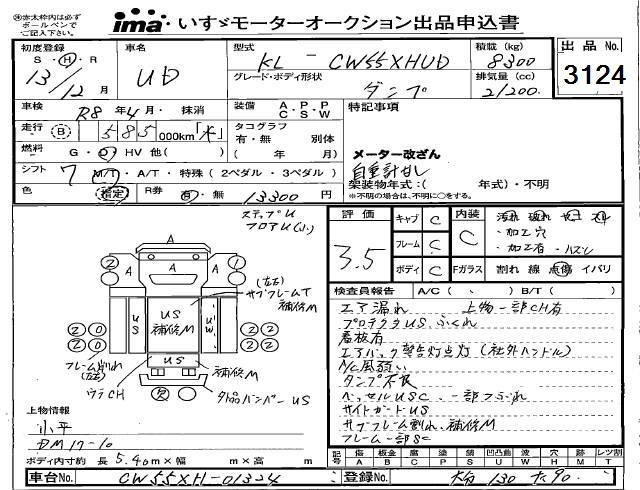 ※赤太枠内は必ず
ボールペンで
ご記入下さい。
ima・いすゞモーターオークション出品申込書
初度登録 S・H・R 13/12月
車名 UD
型式 KL - CW55XHUD
積載(kg) 8300
グレード・ボディ形状 ダンプ
排気量(cc) 21200
出品No.
3124
車検 R8年4月・抹消
装備 A・P・P C・S・W
特記事項
走行 B 585 000km
タコグラフ 有・無 別体 (年 月)
燃料 G・D・HV 他( )
メーター改ざん
シフト 7 M/T・A/T・特殊(2ペダル・3ペダル)
自重計なし
架装物年式:( 年式)・不明
※不明の場合は、不明に○をする。
色 指定 R券 有・無 13300円
ステップU
フロアU(小)
評価 3.5
キャブ C
フレーム C
ボディ C
内装 C
・加工穴
・加工有・ハズレ
Fガラス 割れ 線 点傷 イバリ
検査員報告 A/C( 、 ) B/T( )
エア漏れ 上物一部CH有
プロテクタUS、ふくれ
看板有
エアバック警告灯点灯(社外ハンドル)
N/C風弱い
ダンプ不良
ベッセルUSC、一部つぶれ
サイドガードUS
サブフレーム割れ、補修M
フレーム一部SC
A
A A
(左右)
サブフレームT
補修M
US
US
補修M
UW
US
フレーム割れ
(左右)
補修M
ウラCH
欠
外品バンパーUS
2 1
2 2 2 2
2 2 2 2
上物情報
小平
DM17-10
ボディ内寸約 長 5.40m×幅 m×高 m
記号 傷 板金 腐 塗 錆 凹凸曲 波 穴 跡 レツ割
A B C P S U W H M T
車台No. CW55XH-01324
登録No. 大分 130 た 90